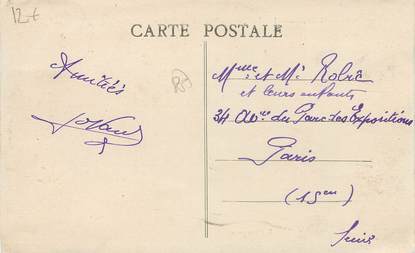 12 €
CARTE POSTALE
Amitiés
Mme et Mr Robre
et leurs enfants
34 Ave du Parc des Expositions
Paris
(15em)
Seine